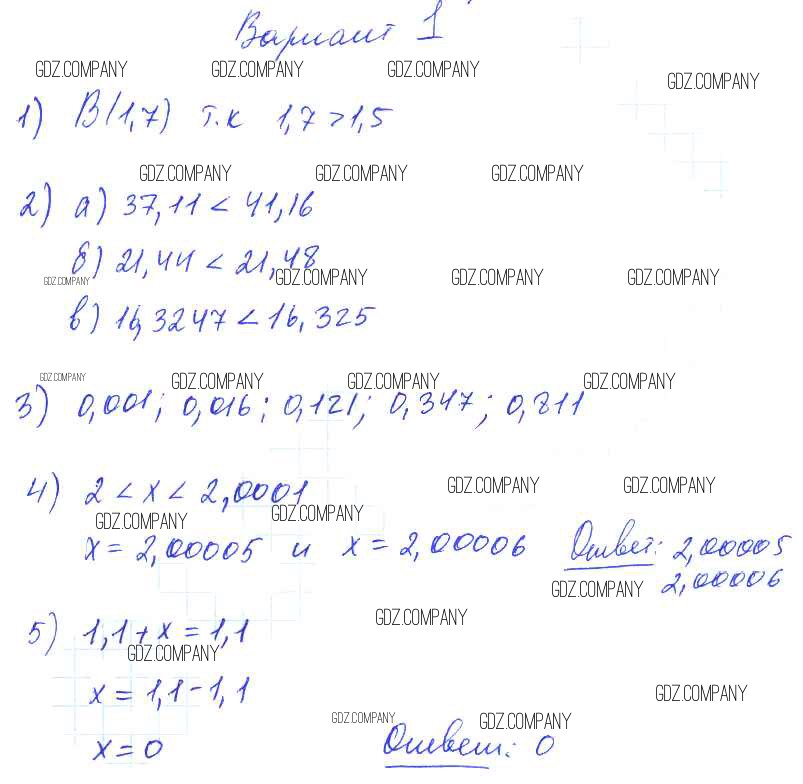 Вариант 1
GDZ.COMPANY GDZ.COMPANY GDZ.COMPANY GDZ.COMPANY
1) В(1,7) т.к 1,7 > 1,5
GDZ.COMPANY GDZ.COMPANY GDZ.COMPANY
2) а) 37,11 < 41,16
б) 21,44 < 21,48
GDZ.COMPANY GDZ.COMPANY GDZ.COMPANY GDZ.COMPANY
в) 16,3247 < 16,325
GDZ.COMPANY GDZ.COMPANY GDZ.COMPANY GDZ.COMPANY
3) 0,001; 0,016; 0,121; 0,347; 0,811
GDZ.COMPANY GDZ.COMPANY
4) 2 < x < 2,0001
GDZ.COMPANY GDZ.COMPANY
x = 2,00005 и x = 2,00006 Ответ: 2,00005
2,00006
GDZ.COMPANY
GDZ.COMPANY
5) 1,1 + x = 1,1
GDZ.COMPANY
x = 1,1 - 1,1
GDZ.COMPANY
GDZ.COMPANY GDZ.COMPANY
x = 0 Ответ: 0